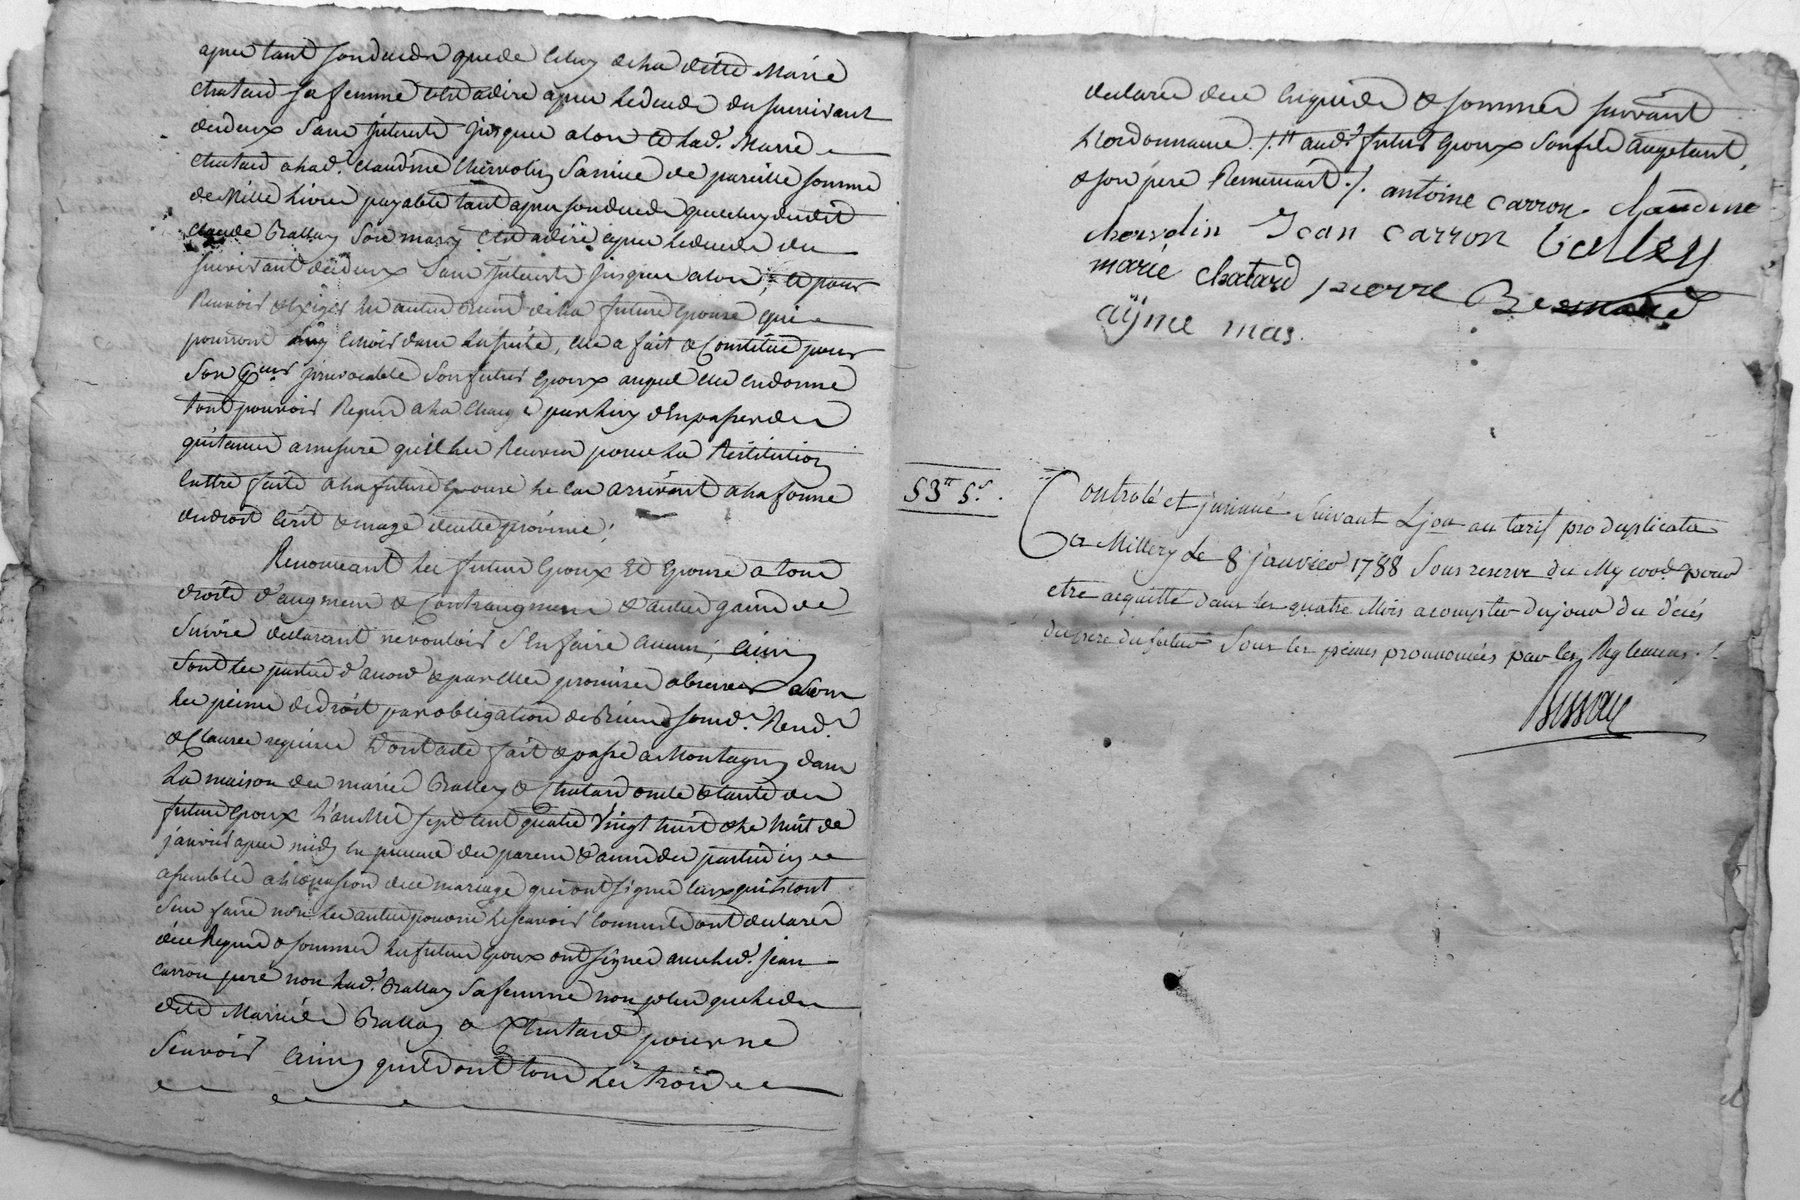 apres tant son deceds que de celuy de la ditte Marie
chatard sa femme cest adire apres le deceds du survivant
des deux sans interets jusques alors et lad.e Marie
chatard a lad.e Claudine Chervolin sa niece de pareille somme
de Mille livres payable tant apres son deceds que celuy dudit
claude Ballay son mary cest adire apres le deceds du
survivant des deux sans interets jusques alors, et pour
Recevoir et exiger les autres droits de la future epouse qui
pourront luy echoir dans la suite, elle a fait et constitué pour
son p.reur irrevocable son futur epoux auquel elle en donne
tout pouvoir Requis a la charge par luy d'en passer des
quitances a mesure qu'il les Recevra pour la Restitution
en etre faite a la future epouse le cas arrivant a la forme
du droit ecrit et usage de cette province;
Renonceant les futurs epoux et epouse a tous
droits d'augment et contraugment et autres gains de
survie declarant ne vouloir s'en faire aucuns, ainsy
sont les parties d'accord et par elles promis observer a
les peines de droit par obligation de biens soumd.s Rend.s
et clauses requises dont acte fait et passé a Montagny dans
la maison des mariés Ballay et Chatard oncle et tante des
futurs epoux l'an Mil sept cent quatre vingt huit et le huit de
janvier apres midy en presence des parens et amis des parties icy
assemblés a l'occasion de ce mariage qui ont signé ceux qui l'ont
sçu faire non les autres pour ne le sçavoir comme ils ont declarés
de ce Requis et sommés les futurs epoux ont signés avec led.t jean
carron pere non lad.e Ballay sa femme non plus que les
dits Mariés Ballay et Chatard pour ne
sçavoir ainsy qu'ils ont tous les trois
declarés de ce enquis et sommés suivant
l'ordonnance ./. aud.t futur epoux son fils
et son pere ./. antoine carron claudine
chervolin Jean carron Balley
marie chatard pierre Bernard
aÿme mas.
53# 5s. Controlé et jnsinué suivant Lyon au tarif pro duplicata
a Millery le 8 janvier 1788 Sous reserve du pour
etre acquitté dans les quatre Mois acompter du jour du décés
du pere du futur Sous les peines prononcées par les Reglemens ./.